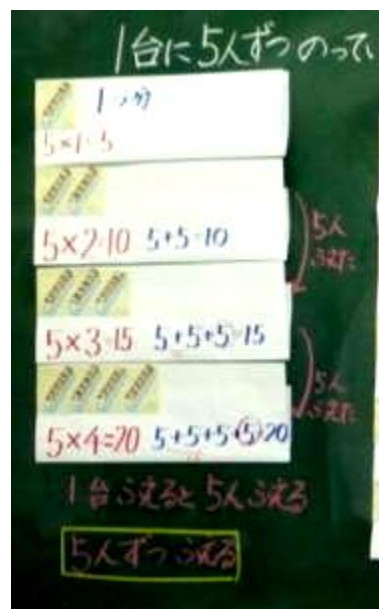 1台に5人ずつのってい
1つ分
5×1=5
5×2=10 5+5=10
5人
ふえた
5×3=15 5+5+5=15
5人
ふえた
5×4=20 5+5+5+5=20
1台ふえると5人ふえる
5人ずつふえる